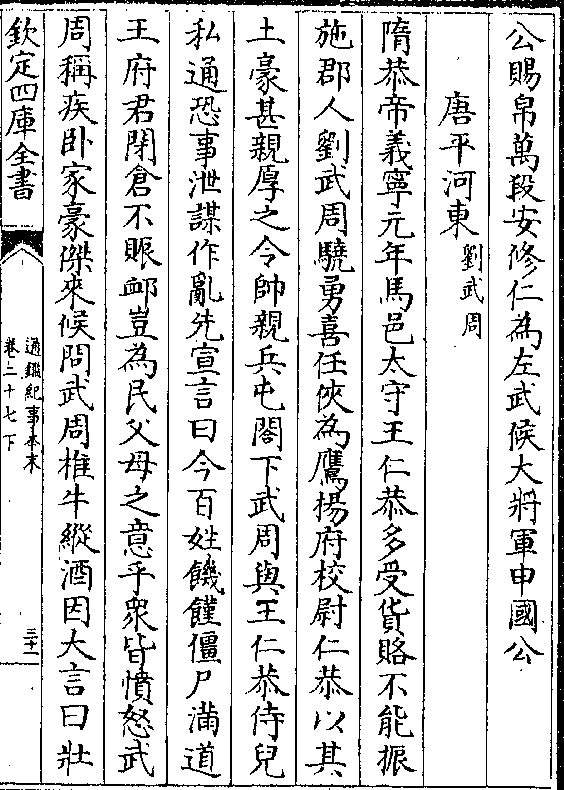 公賜帛萬段安修仁為左武候大將軍申國公
唐平河東劉武周
隋恭帝義寧元年馬邑太守王仁恭多受貨賂不能振
施郡人劉武周驍勇喜任俠為鷹揚府校尉仁恭以其
土豪甚親厚之令帥親兵屯閤下武周與王仁恭侍兒
私通恐事泄謀作亂先宣言曰今百姓饑饉僵尸滿道
王府君閉倉不賑卹豈為民父母之意乎衆皆憤怒武
周稱疾臥家豪傑來候問武周椎牛縱酒因大言曰壯
欽定四庫全書
通鑑紀事本末
卷二十七下
三十一